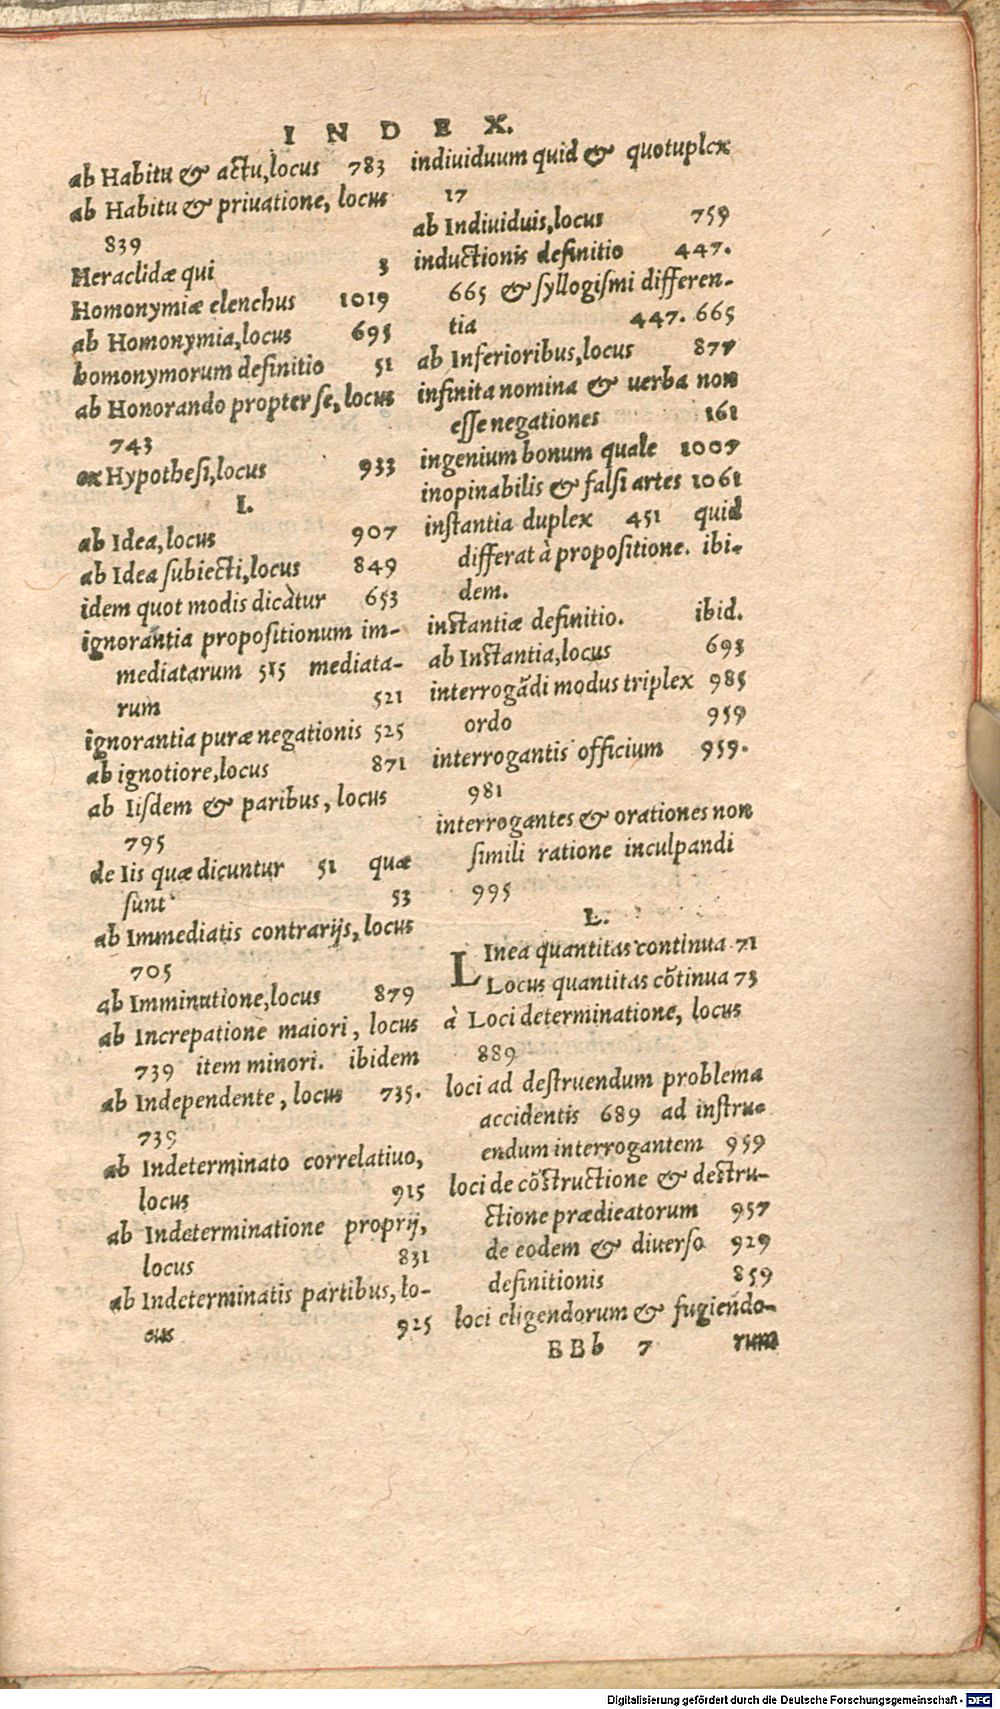 INDEX.
ab Habitu & actu, locus 783
ab Habitu & priuatione, locus
839
Heraclidæ qui 3
Homonymiæ elenchus 1019
ab Homonymia, locus 695
homonymorum definitio 51
ab Honorando propter se, locus
743
ex Hypothesi, locus 933
I.
ab Idea, locus 907
ab Idea subiecti, locus 849
idem quot modis dicàtur 653
ignorantia propositionum im-
mediatarum 515 mediata-
rum 521
ignorantia puræ negationis 525
ab ignotiore, locus 871
ab Iisdem & paribus, locus
795
de Iis quæ dicuntur 51 quæ
sunt 53
ab Immediatis contrarijs, locus
705
ab Imminutione, locus 879
ab Increpatione maiori, locus
739 item minori. ibidem
ab Independente, locus 735.
739
ab Indeterminato correlatiuo,
locus 915
ab Indeterminatione proprij,
locus 831
ab Indeterminatis partibus, lo-
cus 925
indiuiduum quid & quotuplex
17
ab Indiuiduis, locus 759
inductionis definitio 447.
665 & syllogismi differen-
tia 447. 665
ab Inferioribus, locus 877
infinita nomina & verba non
esse negationes 161
ingenium bonum quale 1007
inopinabilis & falsi artes 1061
instantia duplex 451 quid
differat à propositione. ibi-
dem.
instantiæ definitio. ibid.
ab Instantia, locus 693
interrogãdi modus triplex 985
ordo 959
interrogantis officium 959.
981
interrogantes & orationes non
simili ratione inculpandi
995
L.
LInea quantitas continua 71
Locus quantitas cõtinua 73
à Loci determinatione, locus
889
loci ad destruendum problema
accidentis 689 ad instru-
endum interrogantem 959
loci de cõstructione & destru-
ctione prædicatorum 957
de eodem & diuerso 929
definitionis 859
loci eligendorum & fugiendo-
BBb 7 rum
Digitalisierung gefördert durch die Deutsche Forschungsgemeinschaft - DFG